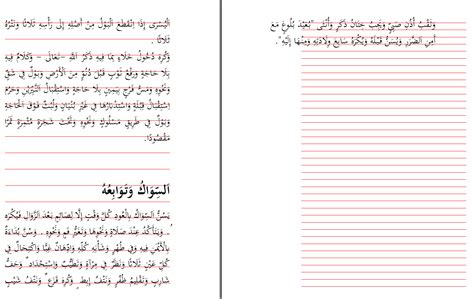 اليُسْرَى إِذَا انْقَطَعَ البَوْلُ مِنْ أَصْلِهِ إِلَى رَأْسِهِ ثَلَاثًا وَنَتْرُهُ
ثَلَاثًا .
وَكُرِهَ دُخُولُ خَلَاءٍ بِمَا فِيهِ ذِكْرُ اللهِ -تَعَالَى- وَكَلَامٌ فِيهِ
بِلَا حَاجَةٍ وَرَفْعُ ثَوْبٍ قَبْلَ دُنُوٍّ مِنَ الْأَرْضِ وَبَوْلٌ فِي شَقٍّ
وَنَحْوِهِ وَمَسُّ فَرْجٍ بِيَمِينٍ بِلَا حَاجَةٍ وَاسْتِقْبَالُ النَّيِّرَيْنِ وَحَرُمَ
اسْتِقْبَالُ قِبْلَةٍ وَاسْتِدْبَارُهَا فِي غَيْرِ بُنْيَانٍ وَلُبْثٌ فَوْقَ الْحَاجَةِ
وَبَوْلٌ فِي طَرِيقٍ مَسْلُوكٍ وَنَحْوِهِ وَتَحْتَ شَجَرَةٍ مُثْمِرَةٍ ثَمَرًا
مَقْصُودًا.
اَلسِّوَاكُ وَتَوَابِعُهُ
يُسَنُّ السِّوَاكُ بِالْعُودِ كُلَّ وَقْتٍ إِلَّا لِصَائِمٍ بَعْدَ الزَّوَالِ فَيُكْرَهُ
. وَيَتَأَكَّدُ عِنْدَ صَلَاةٍ وَنَحْوِهَا وَتَغَيُّرِ فَمٍ وَنَحْوِهِ . وَسُنَّ بُدَاءَةٌ
بِالْأَيْمَنِ فِيهِ وَفِي طُهْرٍ وَشَأْنِهِ كُلِّهِ وَادِّهَانٌ غِبًّا وَاكْتِحَالٌ فِي
كُلِّ عَيْنٍ ثَلَاثًا وَنَظَرٌ فِي مِرْآةٍ وَتَطَيُّبٌ وَاسْتِحْدَادٌ . وَحَفُّ
شَارِبٍ وَتَقْلِيمُ ظُفْرٍ وَنَتْفُ إِبِطٍ . وَكُرِهَ قَزَعٌ . وَنَتْفُ شَيْبٍ
وَثَقْبُ أُذُنِ صَبِيٍّ وَيَجِبُ خِتَانُ ذَكَرٍ وَأُنْثَى "بُعَيْدَ بُلُوغٍ مَعَ
أَمْنِ الضَّرَرِ وَيُسَنُّ قَبْلَهُ وَيُكْرَهُ سَابِعَ وِلَادَتِهِ وَمِنْهَا إِلَيْهِ".